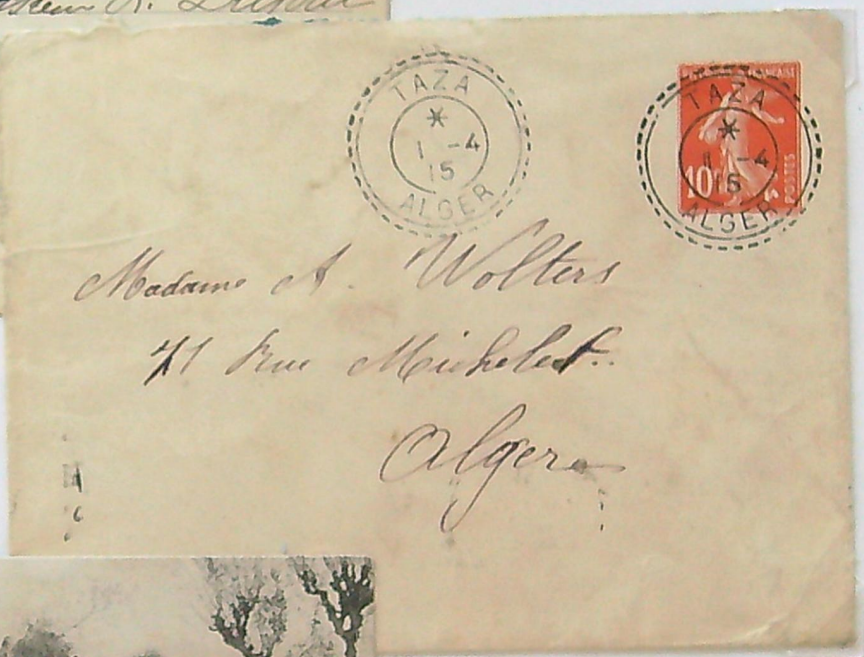 TAZA
*
1 -4
15
ALGER
TAZA
*
1 -4
15
ALGER
10
POSTES
Madame A. Wolters
71 Rue Michelet.
Alger